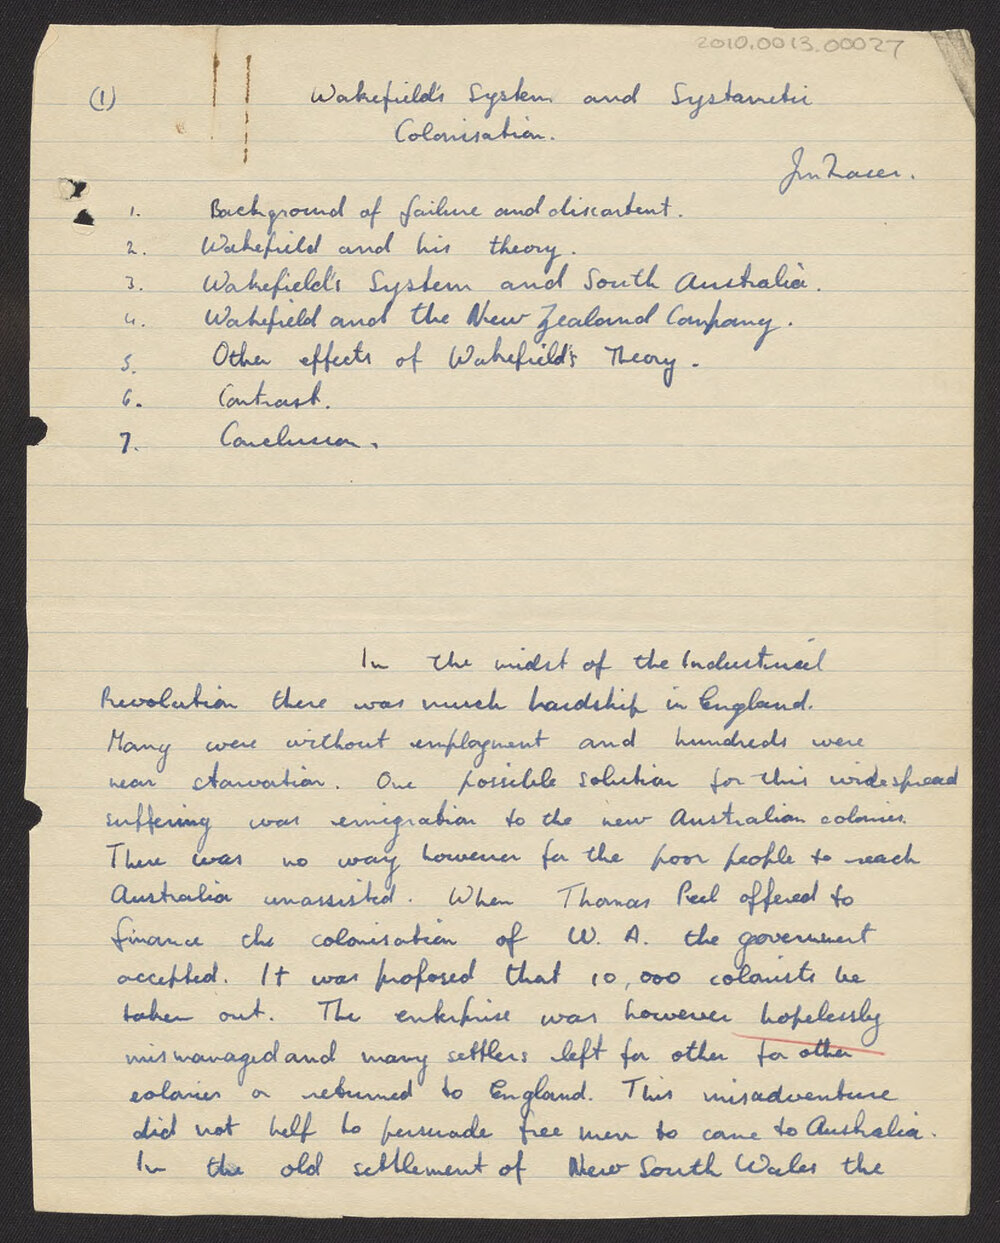 2010.0013.00027
(1) Wakefield's System and Systametic
Colonisation.
Jm Fraser.
1. Background of failure and discontent.
2. Wakefield and his theory.
3. Wakefield's System and South Australia.
4. Wakefield and the New Zealand Company.
5. Other effects of Wakefield's Theory.
6. Contrast.
7. Conclusion.
In the midst of the Industrial
Revolution there was much hardship in England.
Many were without employment and hundreds were
near starvation. One possible solution for this widespread
suffering was emigration to the new Australian colonies.
There was no way however for the poor people to reach
Australia unassisted. When Thomas Peel offered to
finance the colonisation of W. A. the government
accepted. It was proposed that 10,000 colonists be
taken out. The enterprise was however hopelessly
mismanaged and many settlers left for other for other
colonies or returned to England. This misadventure
did not help to persuade free men to come to Australia.
In the old settlement of New South Wales the